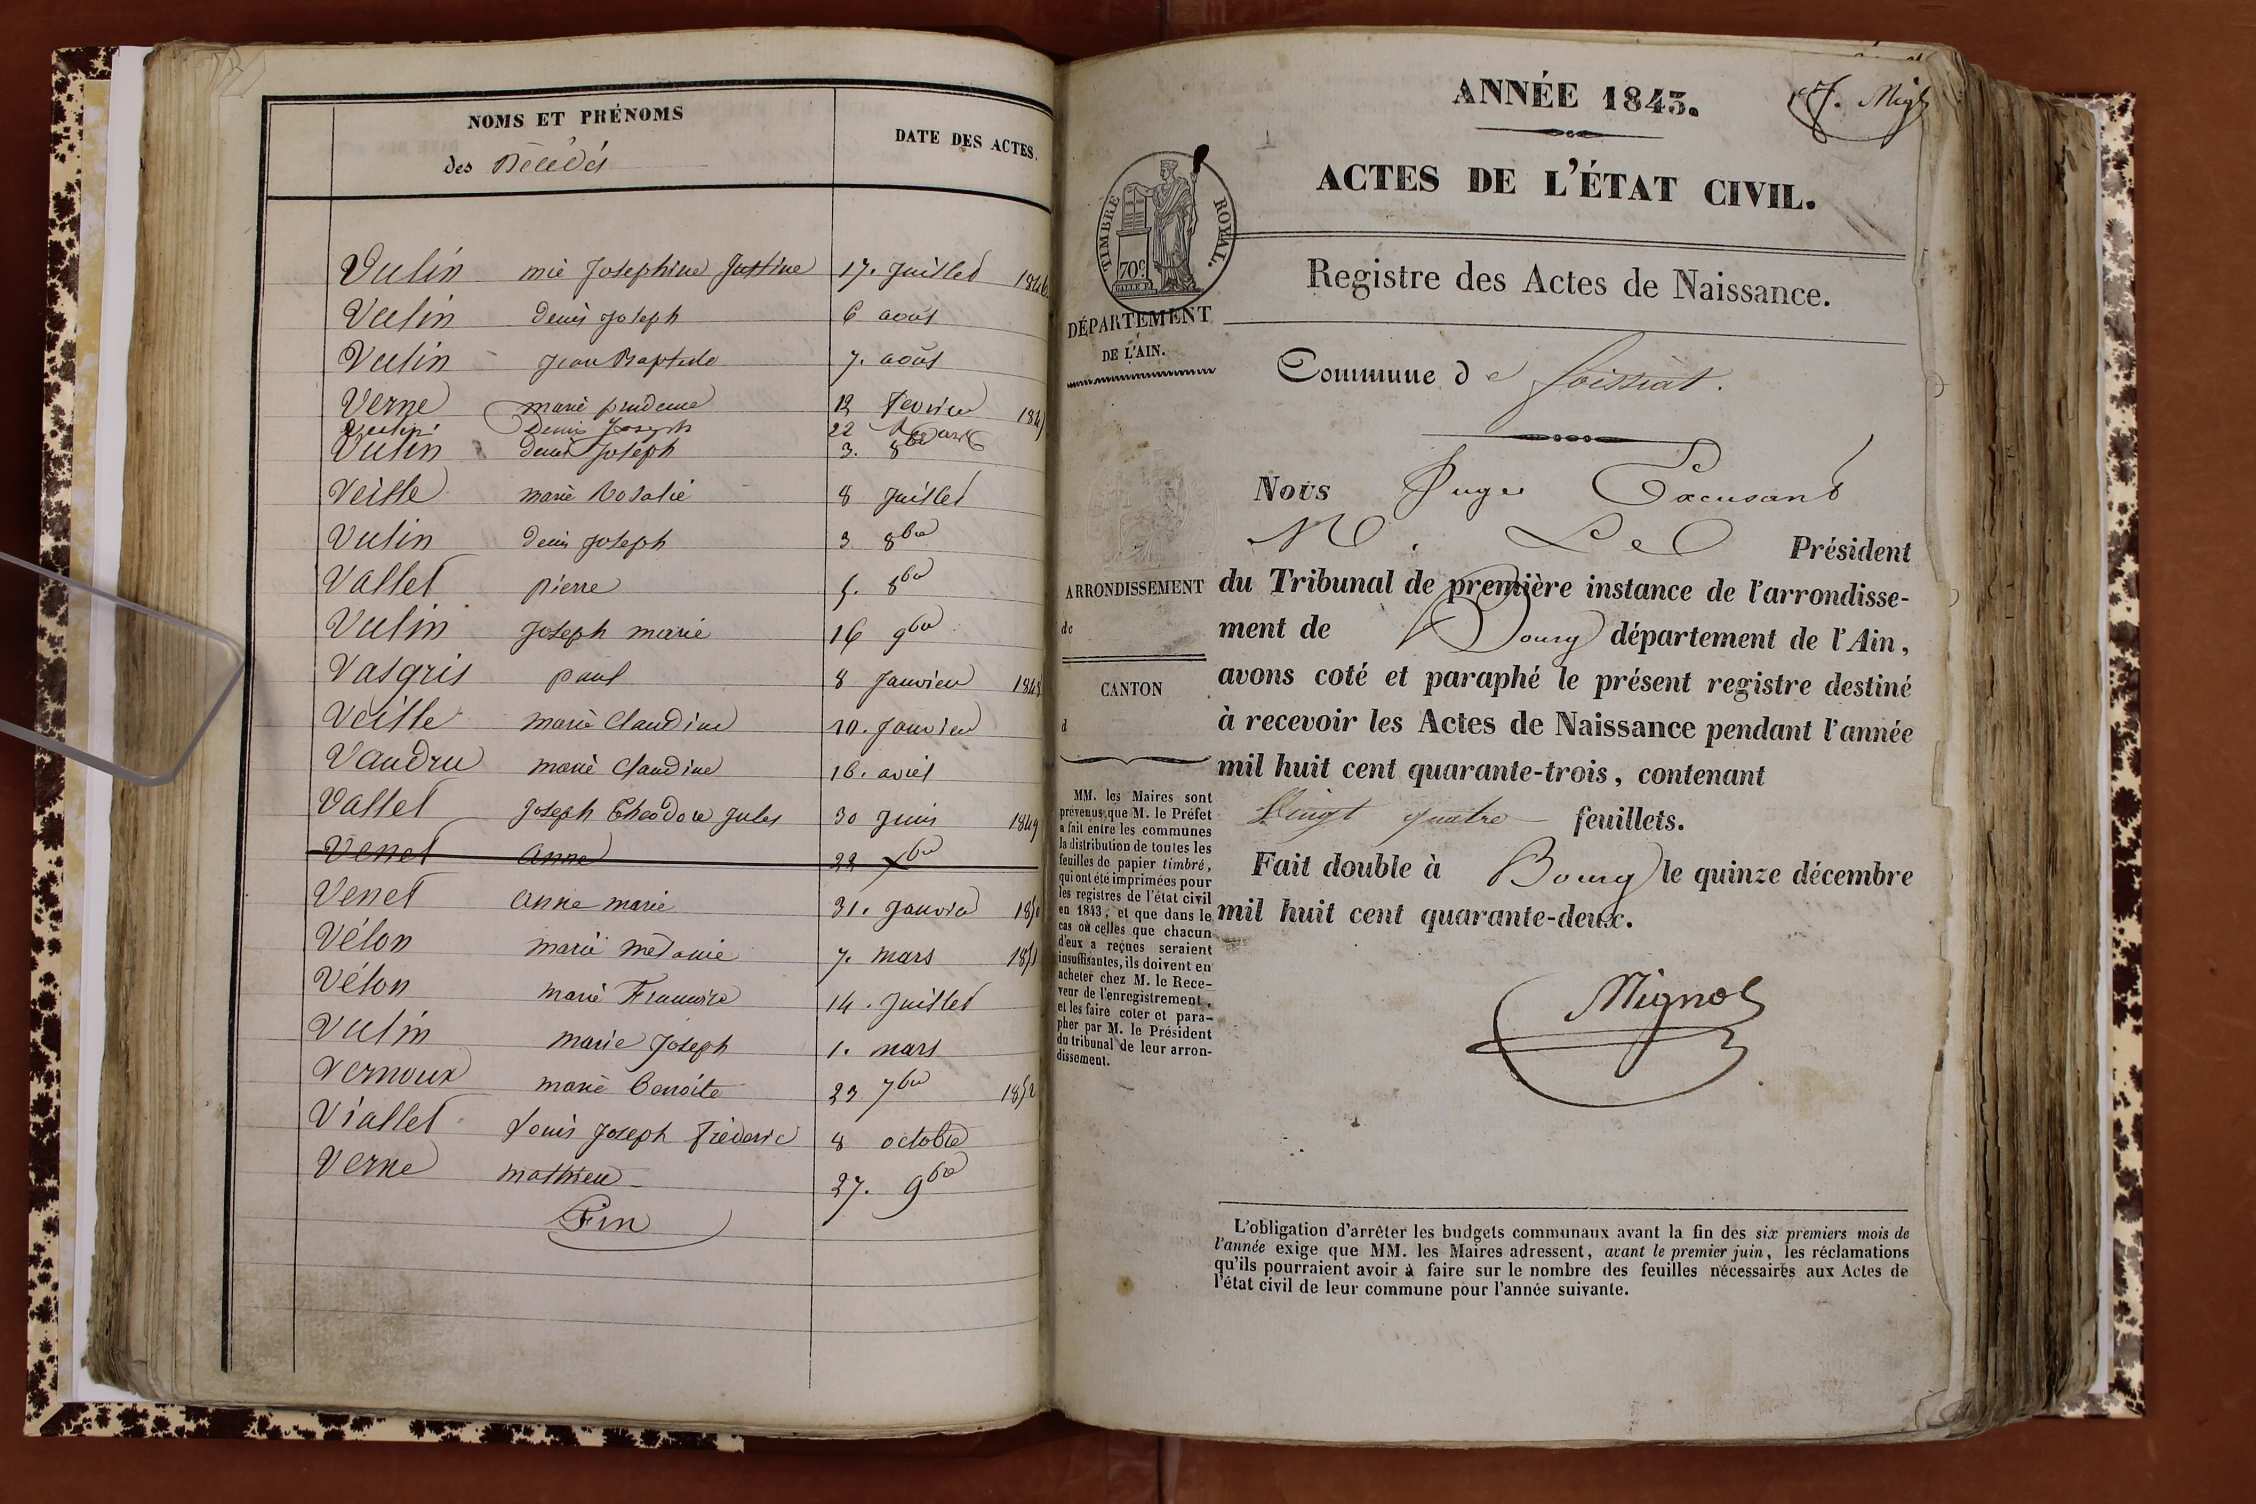 NOMS ET PRÉNOMS
des Décédés
DATE DES ACTES.
Vulin mie Josephine Justine 17. Juillet 1846
Vulin denis Joseph 6 août
Vulin Jean Baptiste 7. août
Verne marie prudence 12 fevrier 1847
Vulin Denis Joseph 22
Vulin denis Joseph 3. 8bre
Veille marie Rosalie 8 Juillet
Vulin denis Joseph 3 8bre
Vallet pierre 5. 8bre
Vulin Joseph marie 16 9bre
Vasgris paul 8 Janvier 1848
Veille marie Claudine 10. Janvier
Vaudru marie Claudine 16. avril
Vallet Joseph Théodore Jules 30 Juin 1849
Venet anne 22 xbre
Venet anne marie 31. Janvier
Vélon marie mélanie 7. mars 1851
Vélon marie Francoise 14. Juillet
Vulin marie Joseph 1. mars
Vernoux marie Benoite 23 7bre 1852
Viallet Louis Joseph fréderic 8 octobre
Verne mathieu 27. 9bre
Fin
ANNÉE 1843.
ACTES DE L'ÉTAT CIVIL.
TIMBRE ROYAL.
70c
Registre des Actes de Naissance.
DÉPARTEMENT
DE L'AIN.
Commune de foissiat.
Nous Juge Excusant
M. Le Président
du Tribunal de première instance de l'arrondisse-
ment de Bourg département de l'Ain,
avons coté et paraphé le présent registre destiné
à recevoir les Actes de Naissance pendant l'année
mil huit cent quarante-trois, contenant
Vingt quatre feuillets.
Fait double à Bourg le quinze décembre
mil huit cent quarante-deux.
Mignot
ARRONDISSEMENT
de
CANTON
d
MM. les Maires sont
prévenus que M. le Préfet
a fait entre les communes
la distribution de toutes les
feuilles de papier timbré,
qui ont été imprimées pour
les registres de l'état civil
en 1843, et que dans le
cas où celles que chacun
d'eux a reçues seraient
insuffisantes, ils doivent en
acheter chez M. le Rece-
veur de l'enregistrement,
et les faire coter et para-
pher par M. le Président
du tribunal de leur arron-
dissement.
L'obligation d'arrêter les budgets communaux avant la fin des six premiers mois de
l'année exige que MM. les Maires adressent, avant le premier juin, les réclamations
qu'ils pourraient avoir à faire sur le nombre des feuilles nécessaires aux Actes de
l'état civil de leur commune pour l'année suivante.